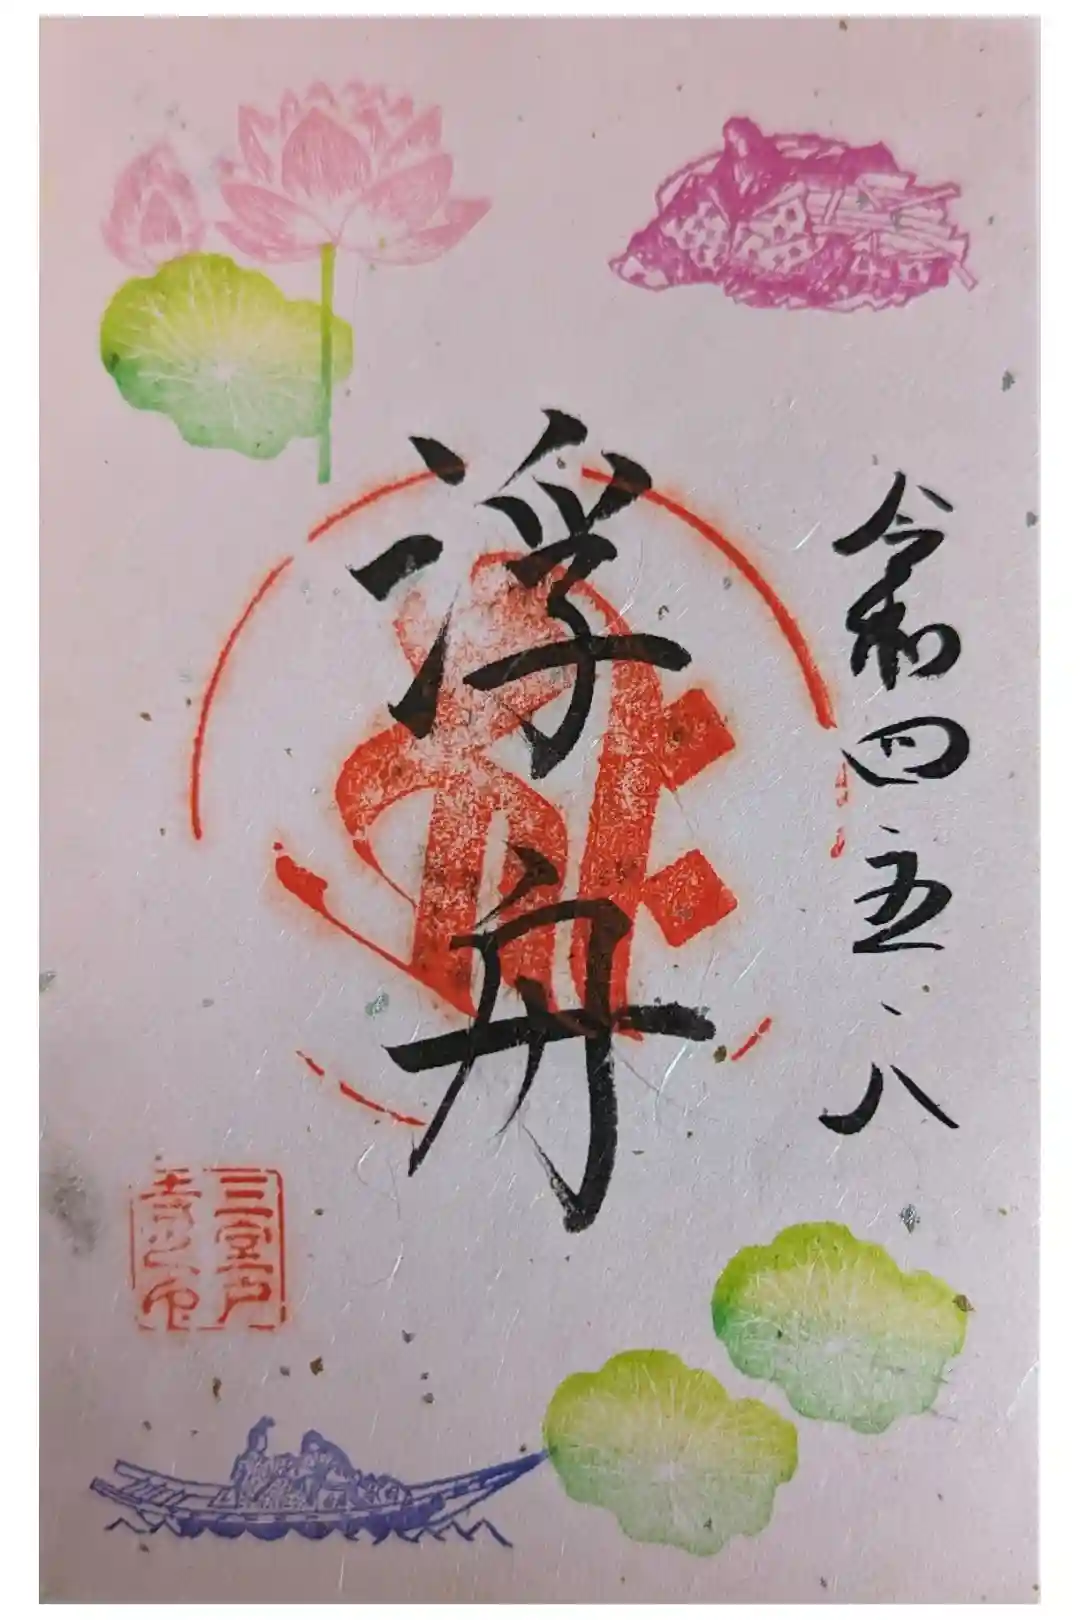 令和四五、八
浮舟
三室戸
寺之印